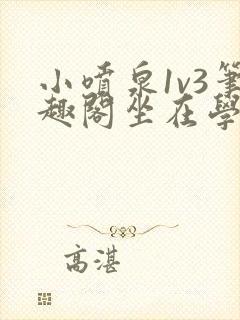 小噴泉1v3筆
趣閣坐在學
高湛